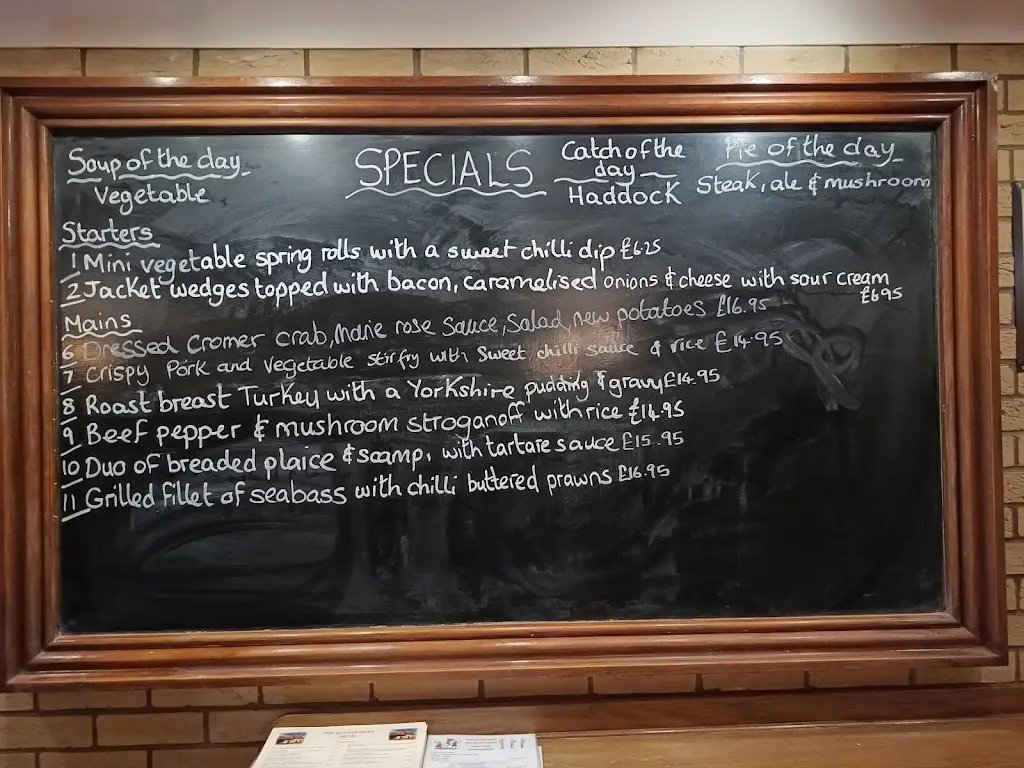 Soup of the day
Vegetable
SPECIALS
Catch of the
day
Haddock
Pie of the day
Steak, ale & mushroom
Starters
1 Mini vegetable spring rolls with a sweet chilli dip £6.25
2 Jacket wedges topped with bacon, caramelised onions & cheese with sour cream
£6.95
Mains
6 Dressed Cromer crab, Marie rose sauce, Salad, new potatoes £16.95
7 Crispy Pork and Vegetable Stirfry with Sweet chilli sauce & rice £14.95
8 Roast breast Turkey with a Yorkshire pudding & gravy £14.95
9 Beef pepper & mushroom stroganoff with rice £14.95
10 Duo of breaded plaice & scampi with tartare sauce £15.95
11 Grilled fillet of seabass with chilli buttered prawns £16.95
MENU